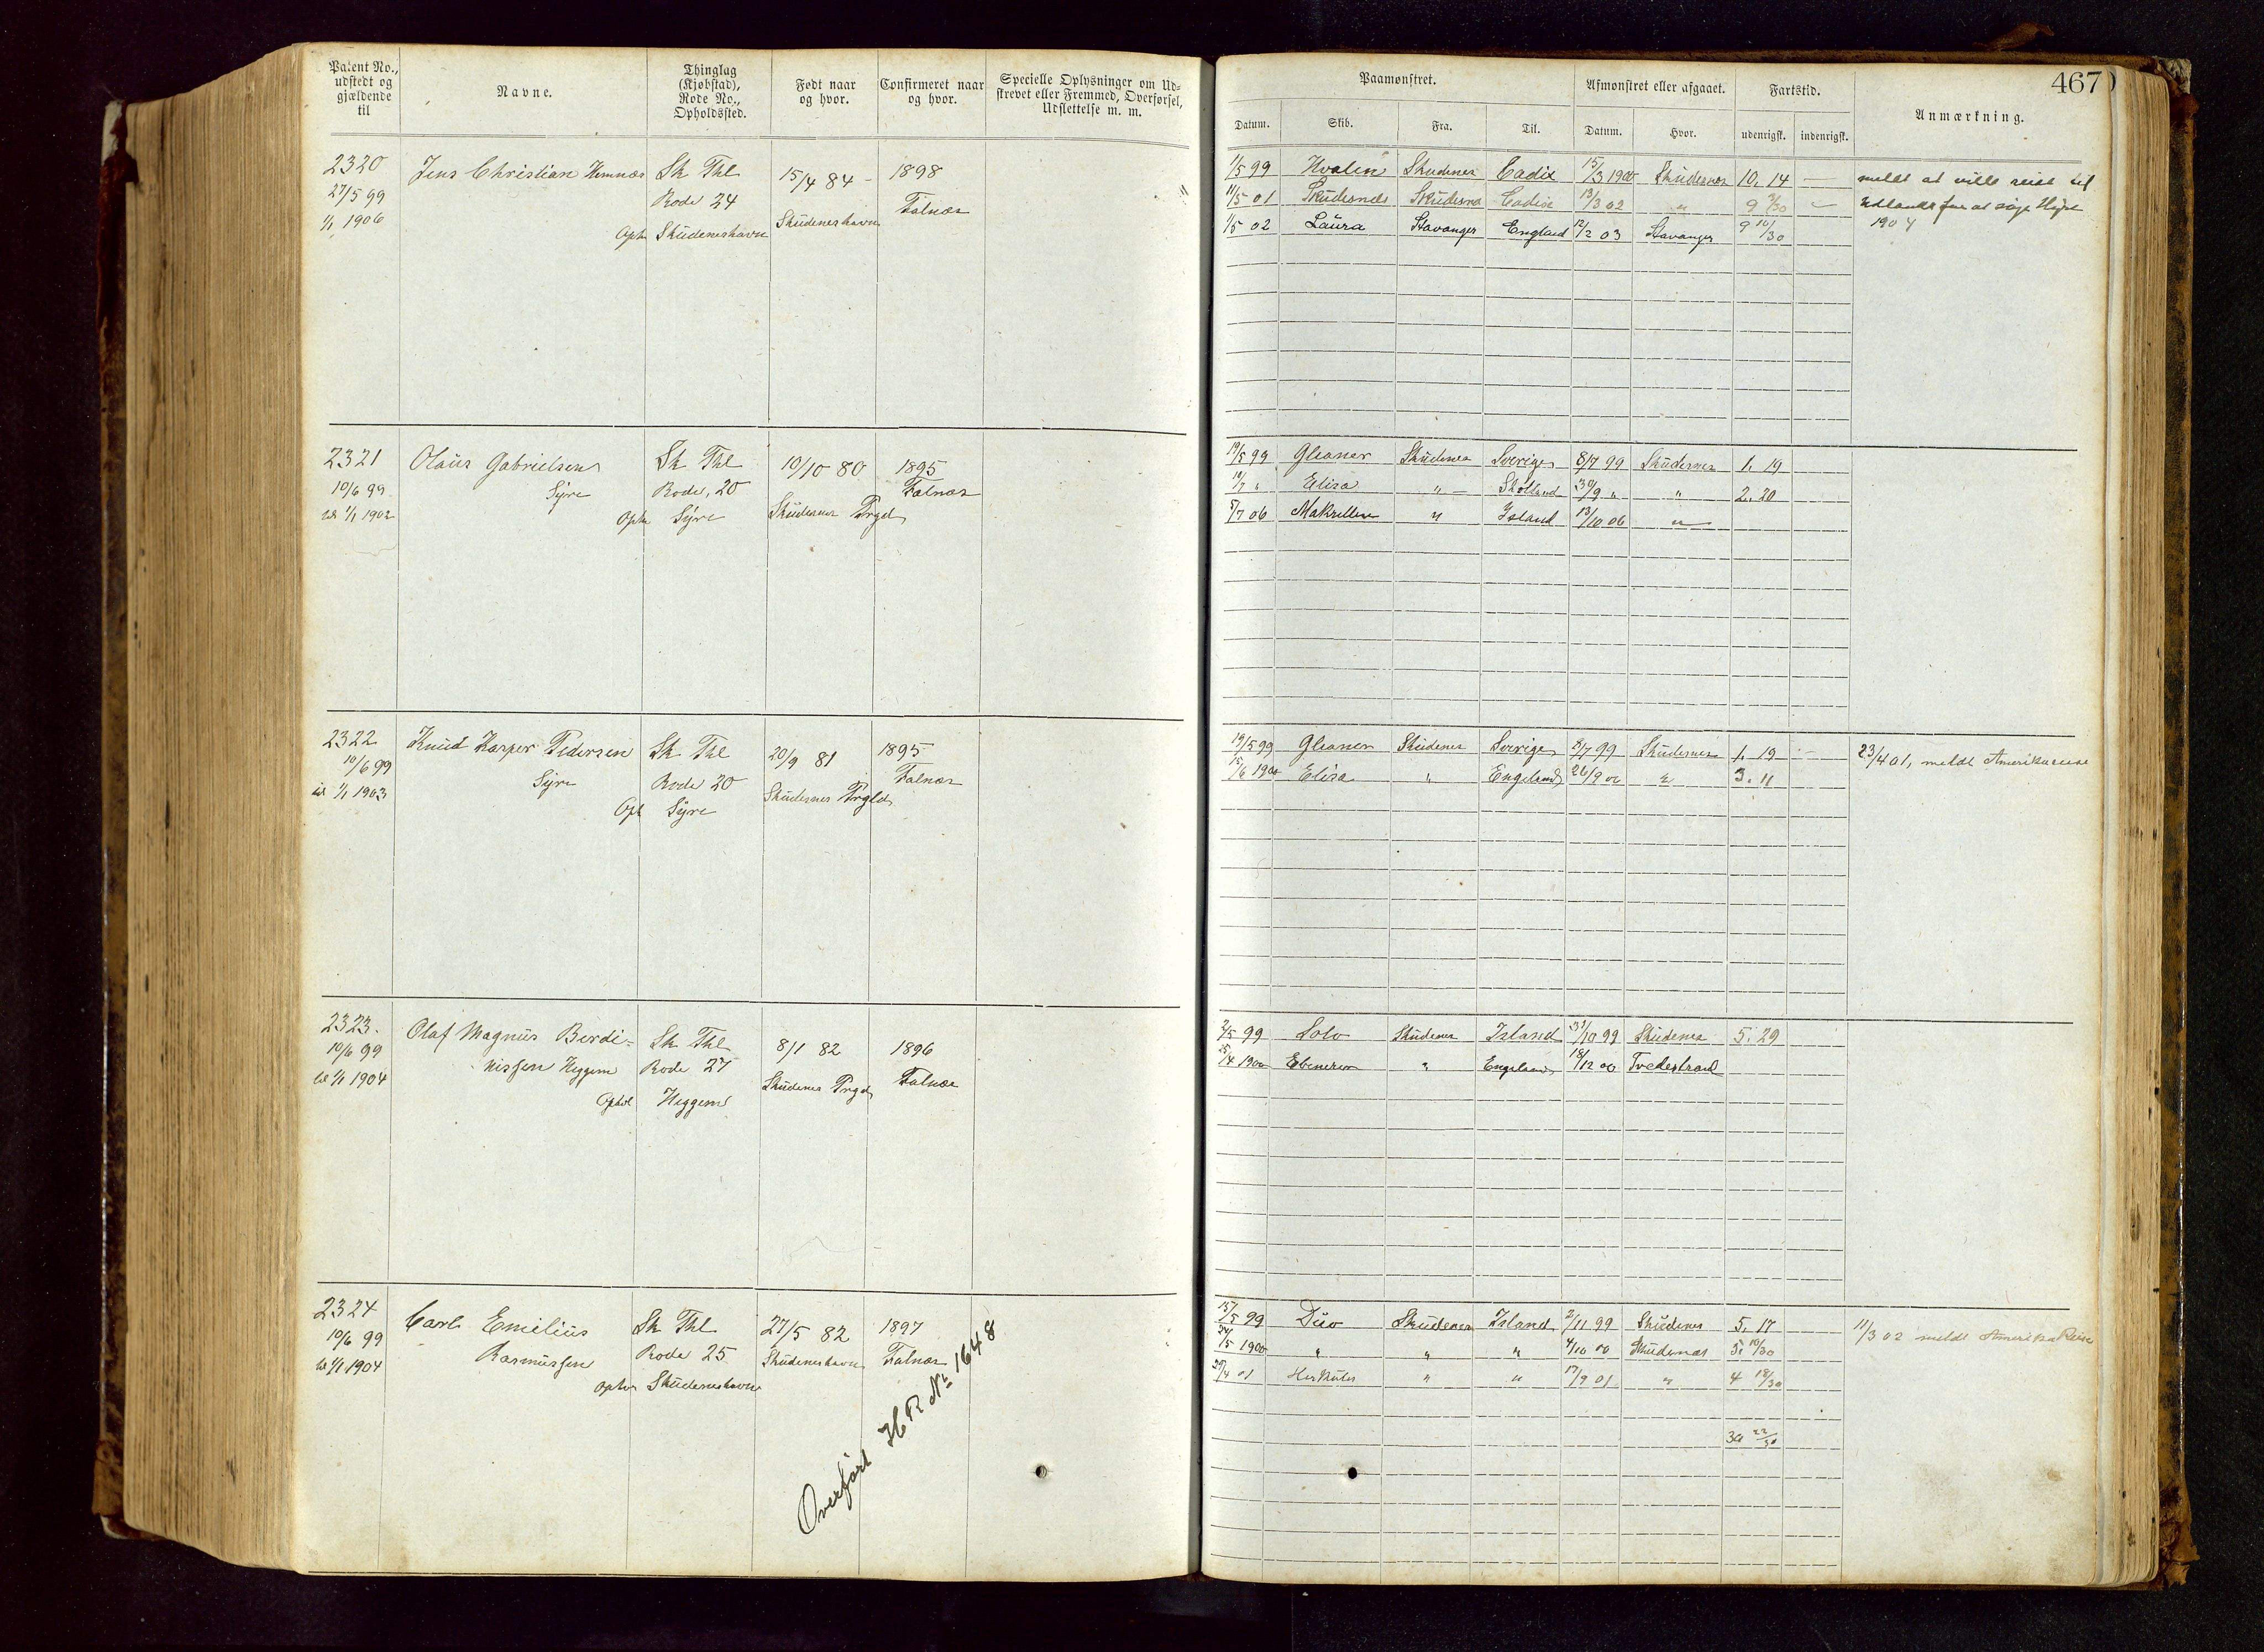 Patent No.,
udstedt og
gjældende
til
Navne.
Thinglag
(Kjøbstad),
Rode No.,
Opholdssted.
Født naar
og hvor.
Confirmeret naar
og hvor.
Specielle Oplysninger om Ud-
skrevet eller Fremmed, Overførsel,
Udslettelse m. m.
2320 Jens Christian Hemnæs Sk Thl 15/4 84 1898
27/5 99 Rode 24 Falnæs
1/1 1906 Oph Skudeneshavn Skudeneshavn
2321 Olaus Gabrielsen Sk Thl 10/10 80 1895
10/6 99 Syre Rode, 20 Falnæs
til 1/1 1902 Oph Syre Skudenes Prgd
2322 Knud Kasper Pedersen Sk Thl 20/9 81 1895
10/6 99 Syre Rode 20 Falnæs
til 1/1 1903 Oph Syre Skudenes Prgld
2323. Olaf Magnus Berdi- Sk Thl 8/1 82 1896
10/6 99 nissen Heggem Rode 27 Falnæs
til 1/1 1904 Ophol Heggem Skudenes Prgd
2324 Carl Emilius Sk Thl 27/5 82 1897
10/6 99 Rasmussen Rode 25 Skudeneshavn Falnæs
til 1/1 1904 Ophs Skudeneshavn
Overført H R No 1648
467
Paamønstret.
Afmønstret eller afgaaet.
Fartstid.
Anmærkning.
Datum. Skib. Fra. Til. Datum. Hvor. udenrigsk. indenrigsk.
1/5 99 Hvalen Skudenes Cadix 15/3 1900 Skudesnes 10. 14 — meldt at ville reise til
11/5 01 Skudesnæs Skudesnæ Cadix 13/3 02 " 9 — Udlandet for at søge Hyre
1/5 02 Laura Stavanger England 12/2 03 Stavanger 9 10/30 1904
19/5 99 Gleaner Skudenes Sverige 8/7 99 Skudesnes 1. 19
19/7 " Elisa " — Skotland 30/9 " " 2. 20
5/7 06 Makrellen " Island 13/10 06 "
19/5 99 Gleaner Skudenes Sverige 8/7 99 Skudesnes 1. 19 — 23/4 01, meldt Amerikareise
15/6 1900 Elisa " England 26/9 00 " 3. 11
2/5 99 Solo Skudenes Island 31/10 99 Skudenes 5. 29
25/4 1900 Ebenezer " England 18/12 00 Tvedestrand
15/5 99 Duo Skudenes Island 2/11 99 Skudenes 5. 17 11/3 02 meldt AmerikaReise
24/5 1900 " " " 4/10 00 Skudenæs 5. 10/30
29/4 01 Herkules " " 17/9 01 " 4 18/30
22/30